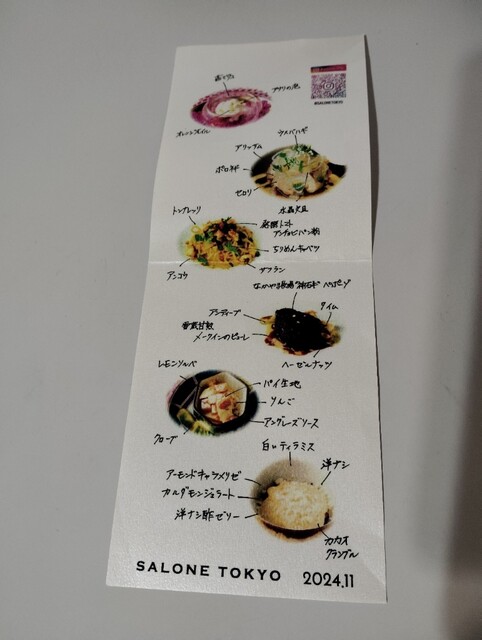 オレンジオイル
ウスバハギ
アリッサム
ポロネギ
セロリ
水晶文旦
トンナレッリ
アンチョビパン粉
ちりめんキャベツ
アンコウ
サフラン
タイム
アンディーブ
メークインのピューレ
ヘーゼルナッツ
レモンソルベ
パイ生地
りんご
アングレーズソース
クローブ
白いティラミス
洋ナシ
アーモンドキャラメリゼ
カルダモンジェラート
洋ナシ酢ゼリー
カカオ
クランブル
SALONE TOKYO 2024.11